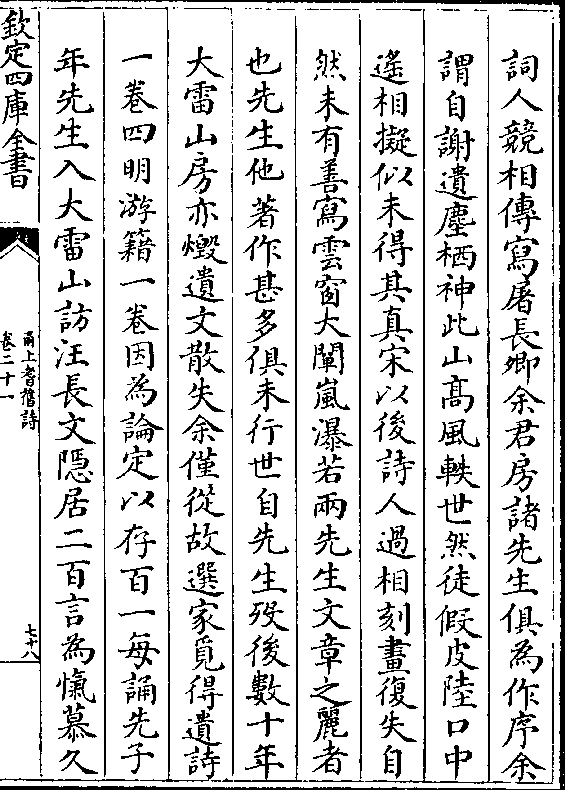 詞人競相傳寫屠長卿余君房諸先生俱為作序余
謂自謝遺塵栖神此山髙風軼世然徒假皮陸口中
遙相擬似未得其真宋以後詩人過相刻畫復失自
然未有善寫雲窗大闡嵐瀑若兩先生文章之麗者
也先生他著作甚多俱未行世自先生歿後數十年
大雷山房亦燬遺文散失余僅從故選家覓得遺詩
一卷四明游籍一卷因為論定以存百一每誦先子
年先生入大雷山訪汪長文隠居二百言為愾慕久
欽定四庫全書
甬上耆舊詩
卷二十一
七十八